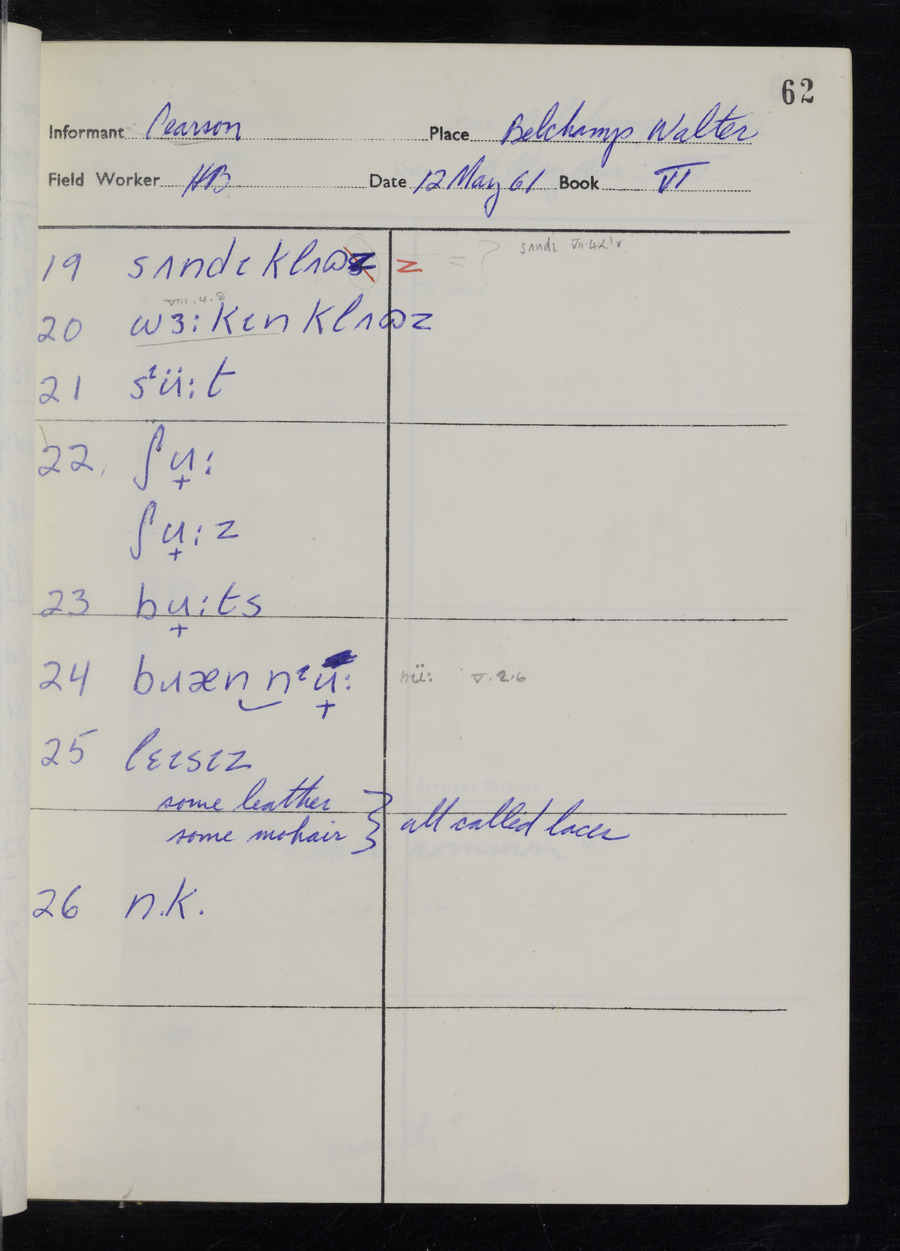 62
Informant Pearson Place Belchamps Walter
Field Worker HB Date 12 May 61 Book VI
19 sʌndɪ klʌɷz z = ? sʌndɪ VII.4.2
20 wɜ:kɪn klʌɷz VIII.4.8
21 sᶦü:t
22. ʃu̟:
ʃu̟:z
23 bu̟:ts
24 bɹæn n‿ᶦu̟: nü: V.2.6
25 lɛɪsɪz
some leather
some mohair } all called laces
26 n.k.